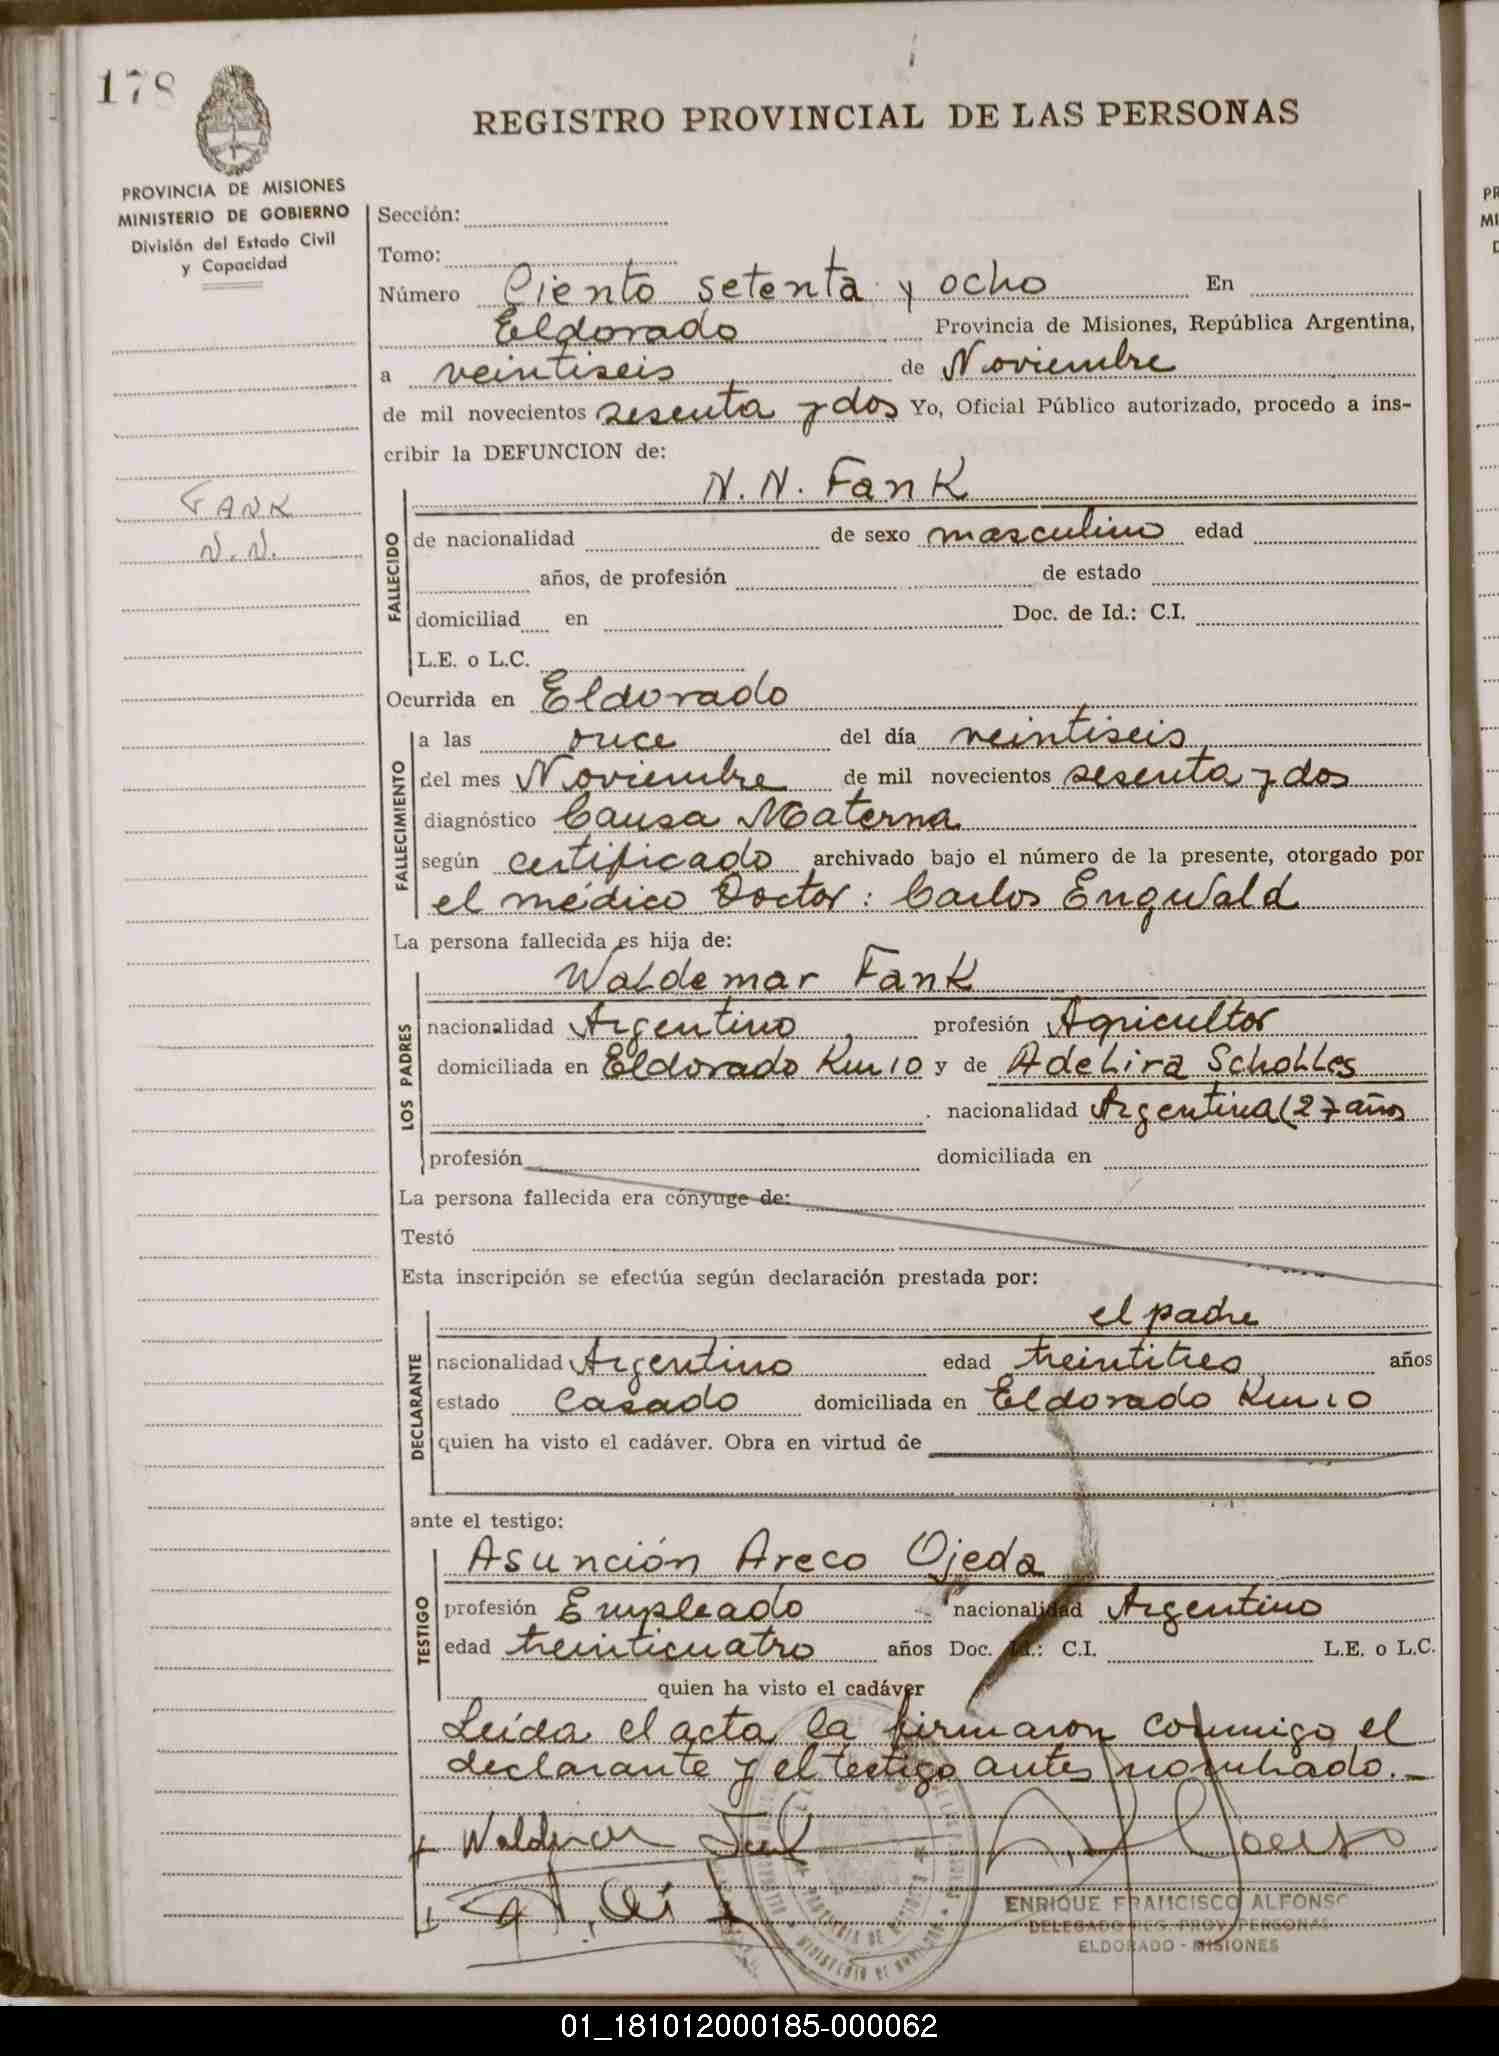 178
REGISTRO PROVINCIAL DE LAS PERSONAS
PROVINCIA DE MISIONES
MINISTERIO DE GOBIERNO
División del Estado Civil
y Capacidad
FANK
N.N.
Sección:
Tomo:
Número Ciento setenta y ocho En
Eldorado Provincia de Misiones, República Argentina,
a veintiseis de Noviembre
de mil novecientos sesenta y dos Yo, Oficial Público autorizado, procedo a ins-
cribir la DEFUNCION de:
N. N. Fank
FALLECIDO
de nacionalidad de sexo masculino edad
años, de profesión de estado
domiciliad en Doc. de Id.: C.I.
L.E. o L.C.
Ocurrida en Eldorado
FALLECIMIENTO
a las once del día veintiseis
del mes Noviembre de mil novecientos sesenta y dos
diagnóstico Causa Materna
según certificado archivado bajo el número de la presente, otorgado por
el médico Doctor: Carlos Engwald
La persona fallecida es hija de:
LOS PADRES
Waldemar Fank
nacionalidad Argentino profesión Agricultor
domiciliada en Eldorado Km 10 y de Adelira Scholles
nacionalidad Argentina (27 años
profesión domiciliada en
La persona fallecida era cónyuge de:
Testó
Esta inscripción se efectúa según declaración prestada por:
DECLARANTE
el padre
nacionalidad Argentino edad treintitres años
estado Casado domiciliada en Eldorado Km 10
quien ha visto el cadáver. Obra en virtud de
ante el testigo:
TESTIGO
Asunción Areco Ojeda
profesión Empleado nacionalidad Argentino
edad treinticuatro años Doc. Id.: C.I. L.E. o L.C.
quien ha visto el cadáver
Leída el acta la firmaron conmigo el
declarante y el testigo antes nombrado.-
Waldemar Fank
ENRIQUE FRANCISCO ALFONSO
DELEGADO REG. PROV. PERSONAS
ELDORADO - MISIONES
01_181012000185-000062